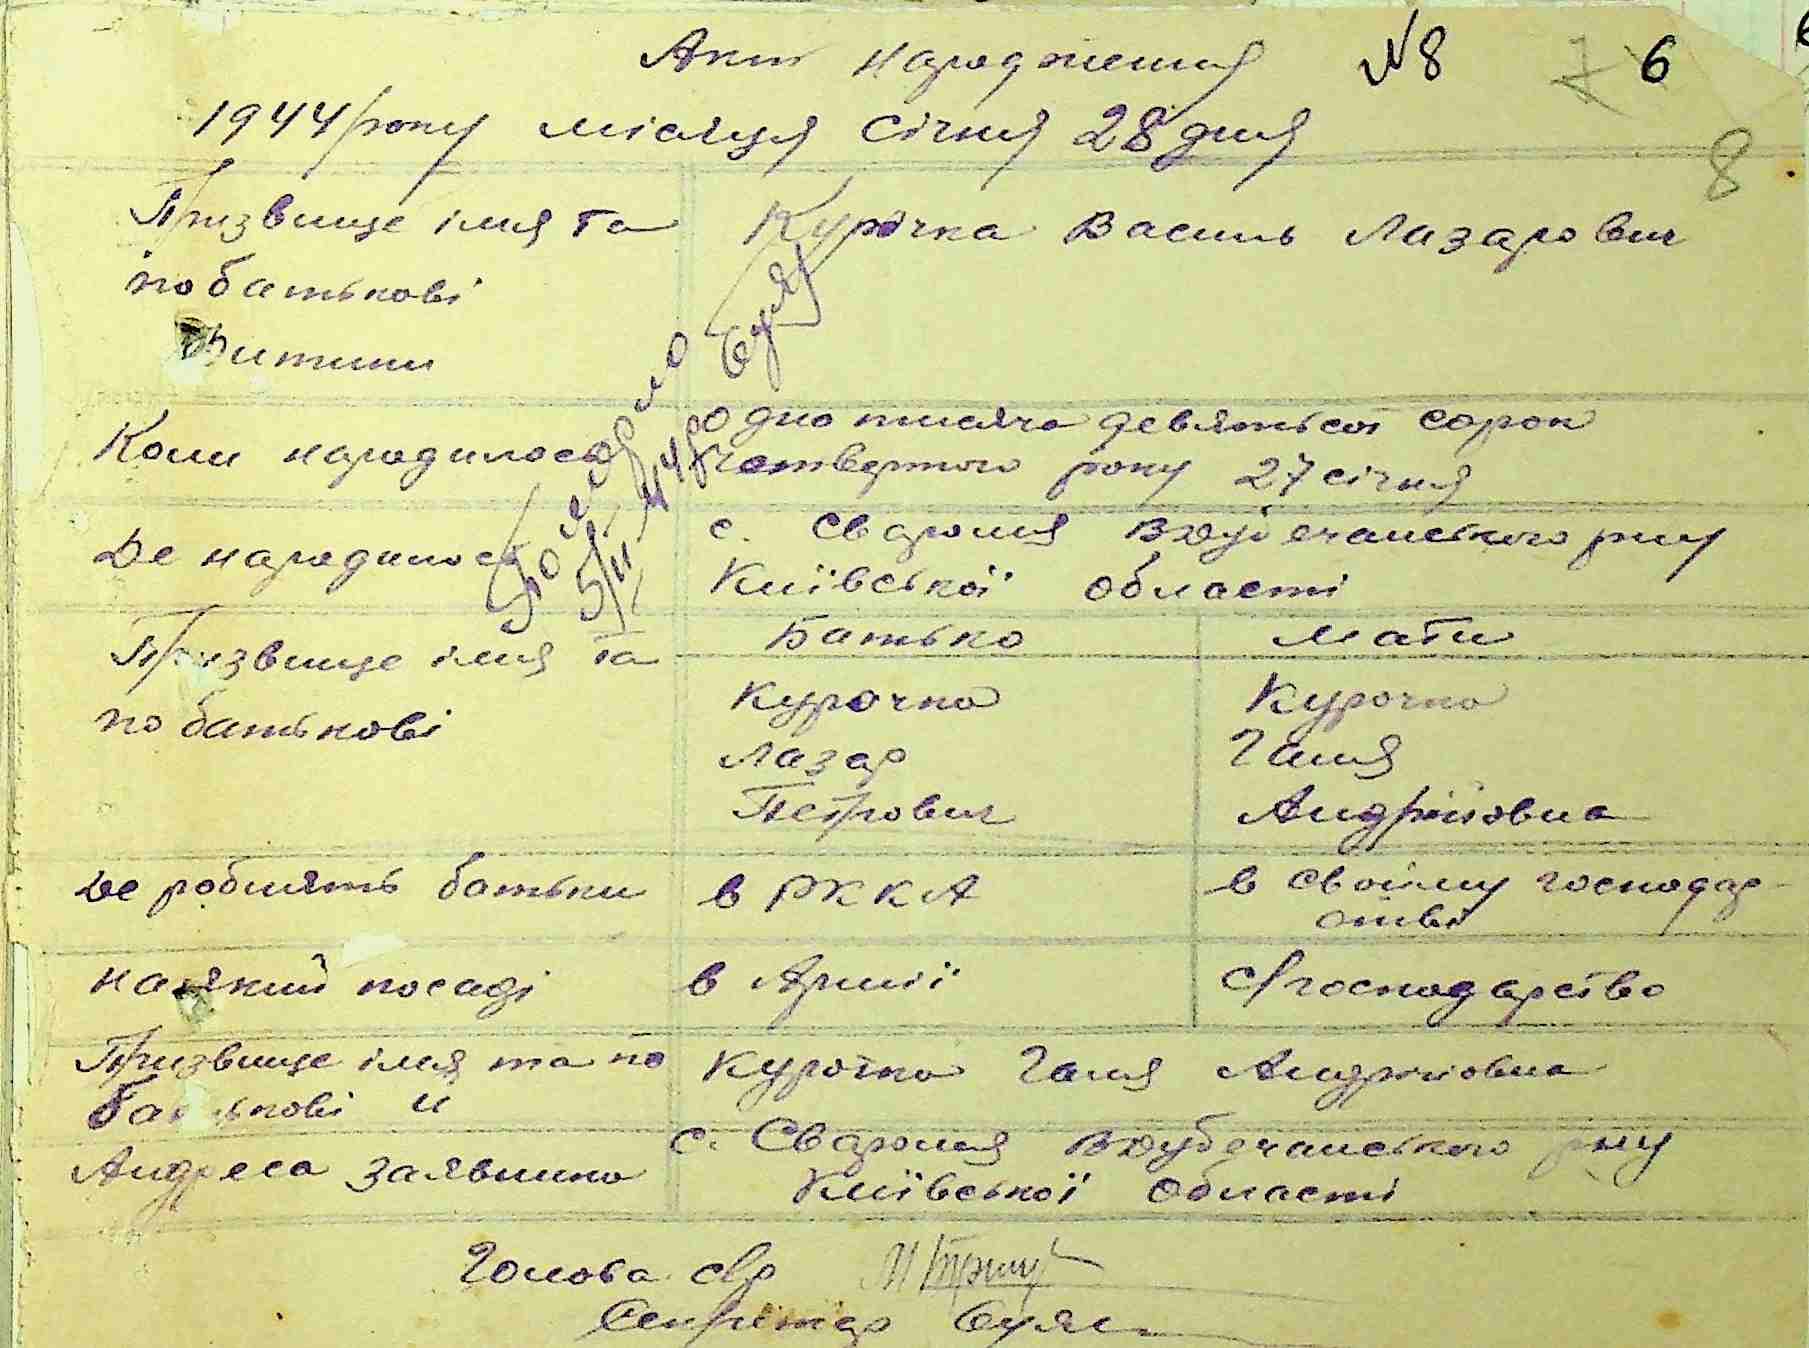 Акт народження №8 7 6
1944 року місяця січня 28 дня
8
Призвище імя та
по батькові
Дитини
Курочка Василь Лазарович
Коли народилось
одна тисяча девятьсот сорок
четвертого року 27 січня
Де народилось
с. Сваромя ВДубечанського рну
Київської області
Призвище імя та
по батькові
Батько
Мати
Курочка
Лазар
Петрович
Курочка
Галя
Андріївовна
Де роблять батьки
в РККА
в своіму господар-
стві
на який посаді
в Армії
С/господарство
Призвище імя та по
батькові и
Курочка Галя Андріїовна
Андреса заявника
с. Сваромя ВДубечанського рну
Київської області
Голова с/р
Секретар
5/II 44 р